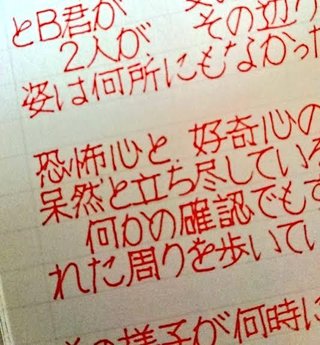 とB君が
その辺り
2人が、
姿は何所にもなかった
恐怖心と、好奇心の
呆然と立ち尽している
何かの確認でもす
れた周りを歩いてい
様子が何時に